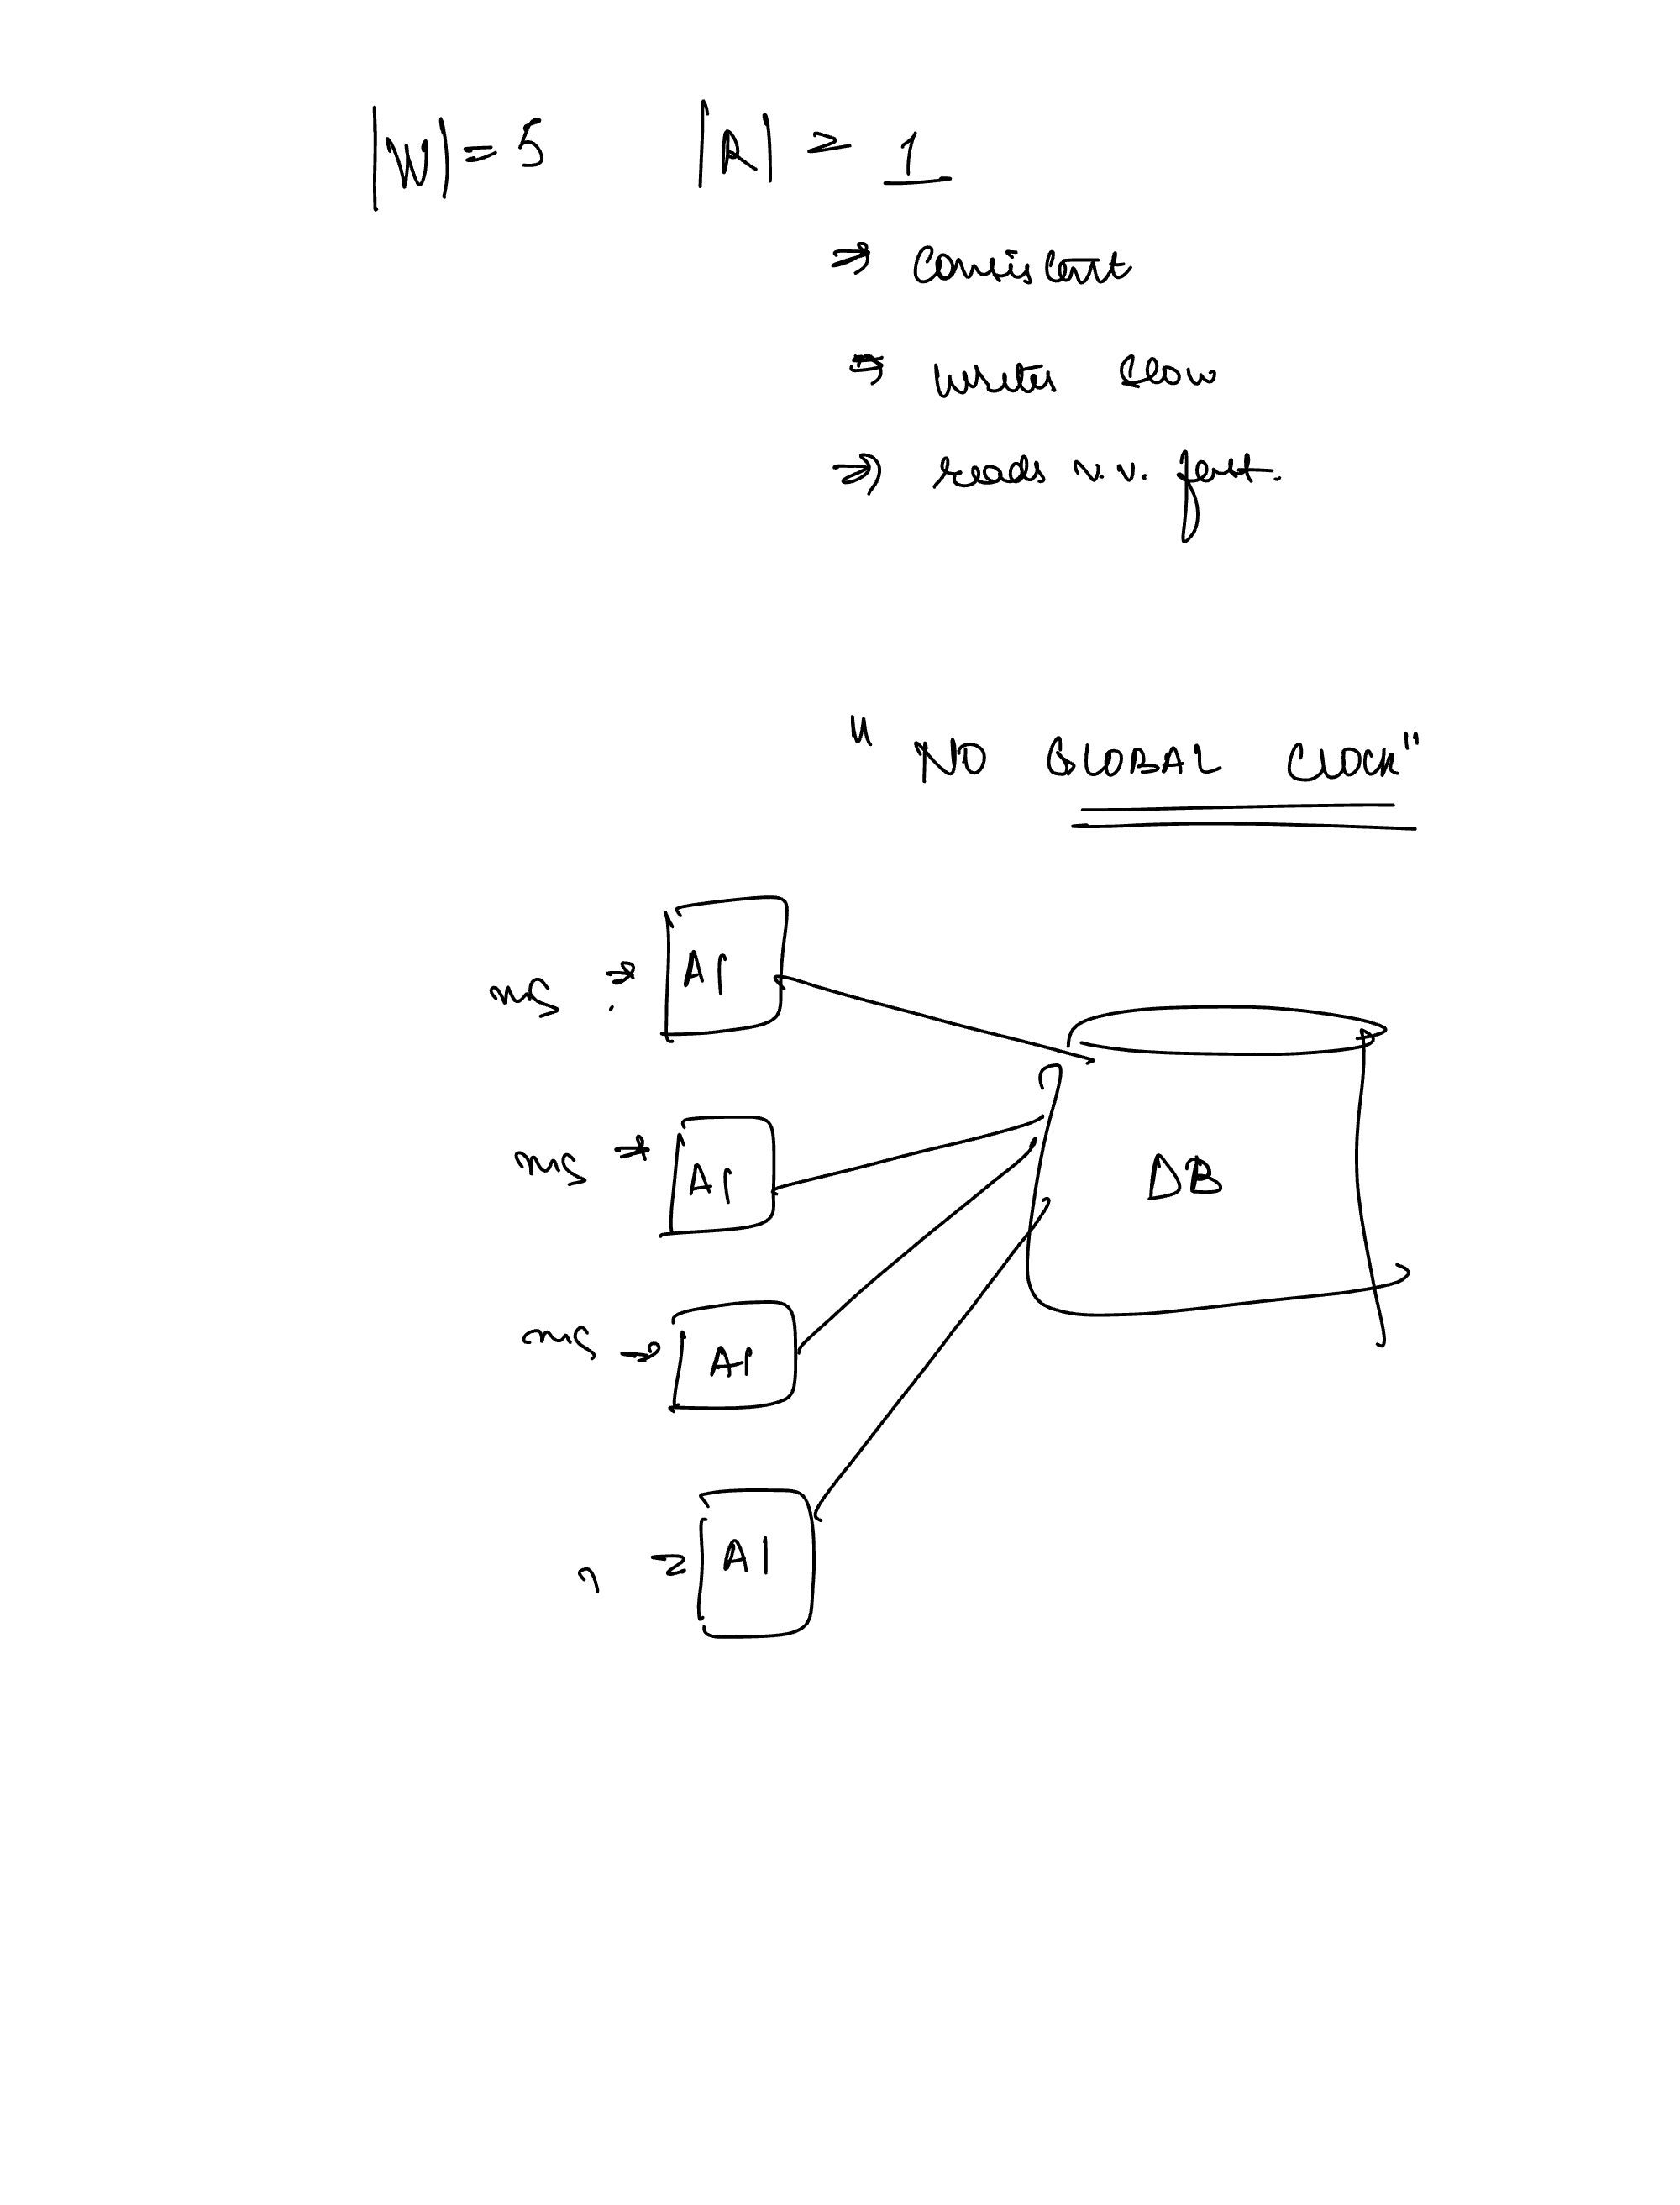 |W| = 5 |R| = 1
⇒ Consistent
⇒ writes slow
⇒ reads v.v. fast.
" NO GLOBAL CLOCK"
ms → A1
ms → A1
DB
ms → A1
→ A1